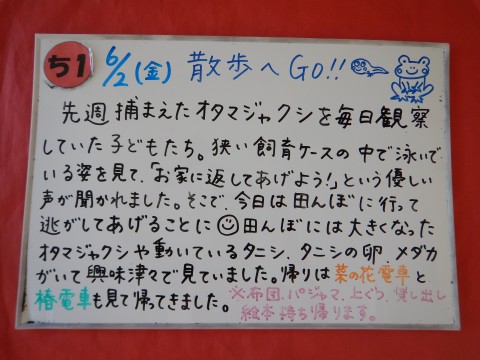 ち1 6/2(金) 散歩へGO!!
先週捕まえたオタマジャクシを毎日観察
していた子どもたち。狭い飼育ケースの中で泳いで
いる姿を見て、「お家に返してあげよう!」という優しい
声が聞かれました。そこで、今日は田んぼに行って
逃がしてあげることに☺田んぼには大きくなった
オタマジャクシや動いているタニシ、タニシの卵、メダカ
がいて興味津々で見ていました。帰りは菜の花電車と
椿電車も見て帰ってきました。
※布団、パジャマ、上ぐつ、貸し出し
絵本持ち帰ります。